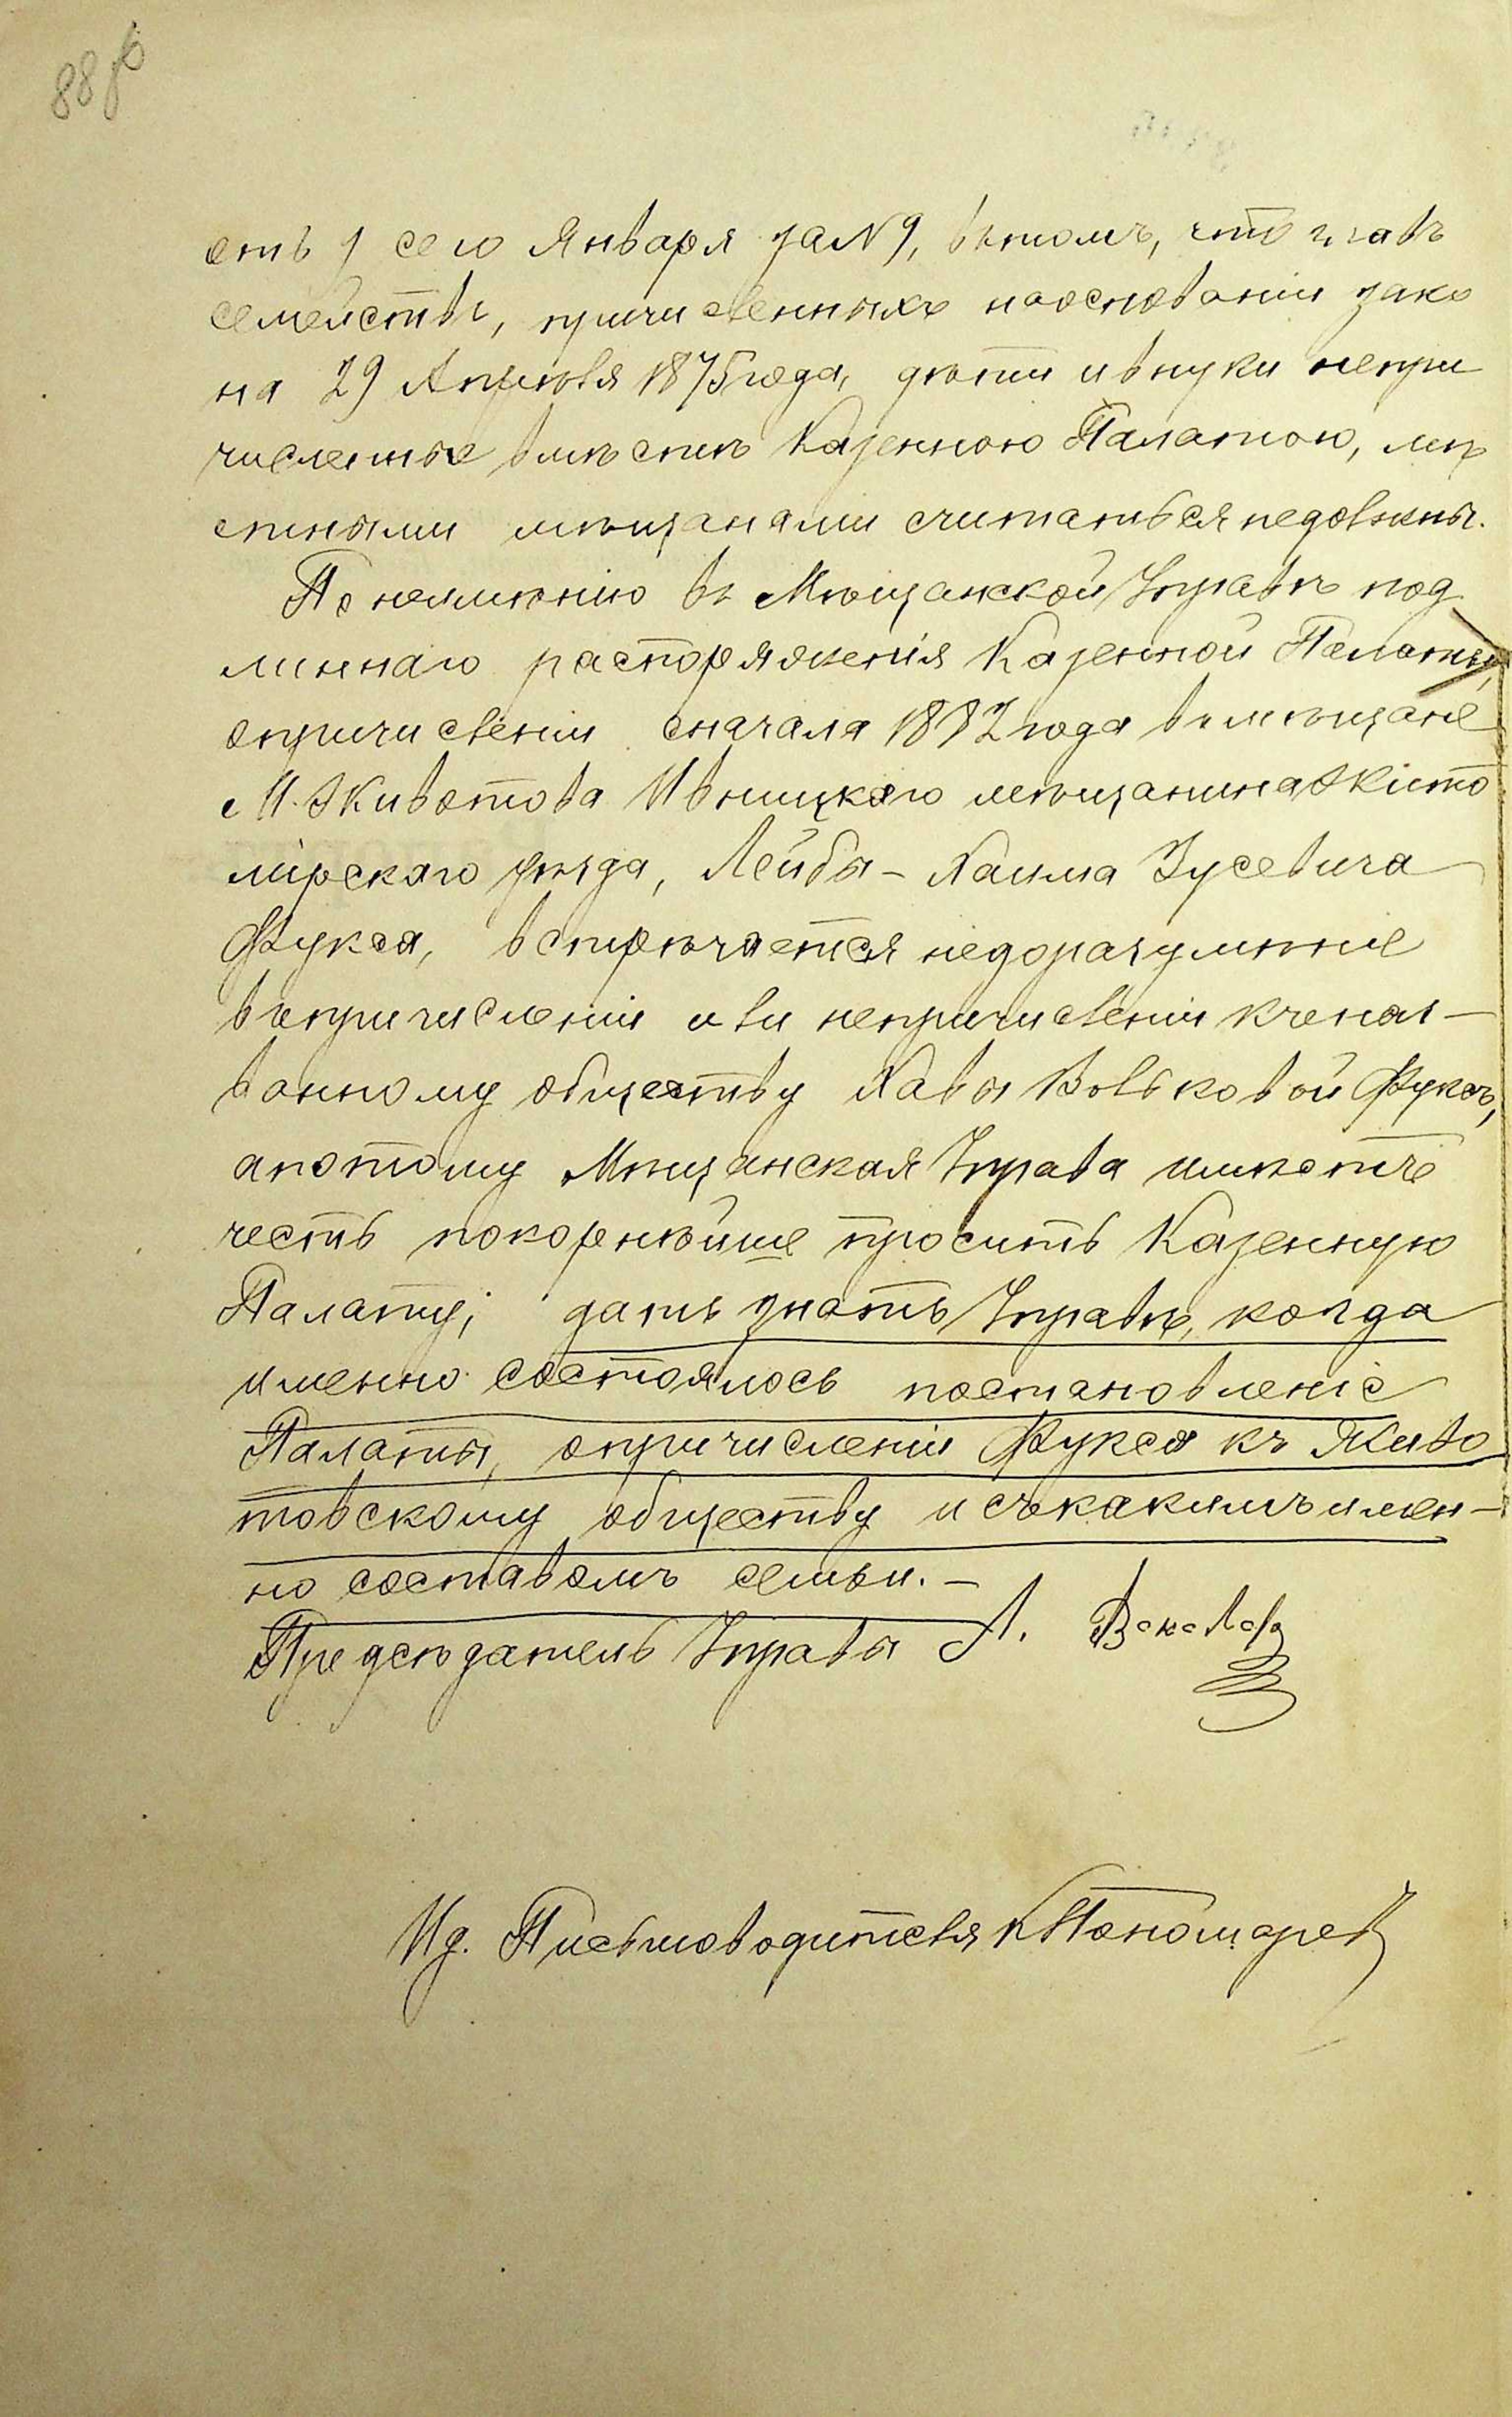 88 об
отъ 9 сего Января за №9, въ томъ, что главъ
семействъ, причисленныхъ наоснованіи зако
на 29 Апрѣля 1875 года, дѣти и внуки непри
численные вмѣстѣ Казенною Палатою, мѣ
стными мѣщанами считаться недолжны.
По неимѣнію въ Мѣщанской Управѣ под
линнаго распоряженія Казенной Палаты,
опричисленіи сначала 1882 года въ мѣщане
м. Животова Ивницкаго мѣщанина Жито
мірскаго уѣзда, Лейбы-Хаима Зусевича
Фукса, встрѣчается недоразумѣніе
въ причисленіи или непричисленіи к
ванному обществу Хавы Вольковой Фуксъ,
а потому Мѣщанская Управа имѣетъ
честь покорнѣйше просить Казенную
Палату; дать знать Управѣ, когда
именно состоялось постановленіе
Палаты, опричисленіи Фукса къ Живо
товскому обществу и съ какимъ имен-
но составомъ семьи. -
Предсѣдатель Управы
Ид. Письмоводителя К Пономарев